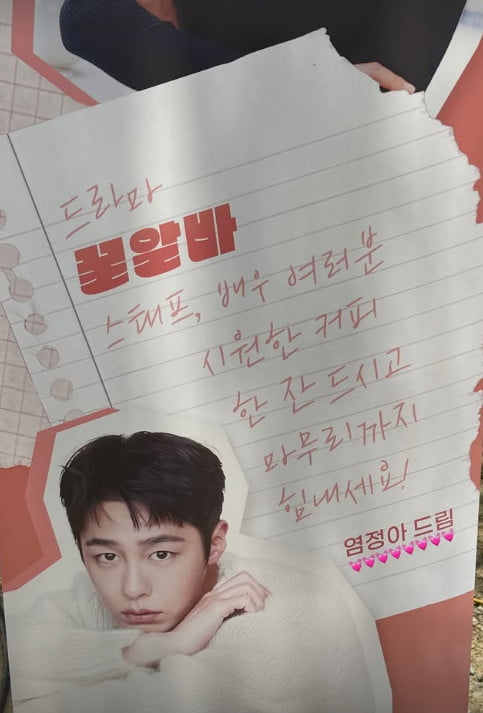 드라마
꽃알바
스태프, 배우 여러분
시원한 커피
한 잔 드시고
마무리까지
힘내세요!
염정아 드림